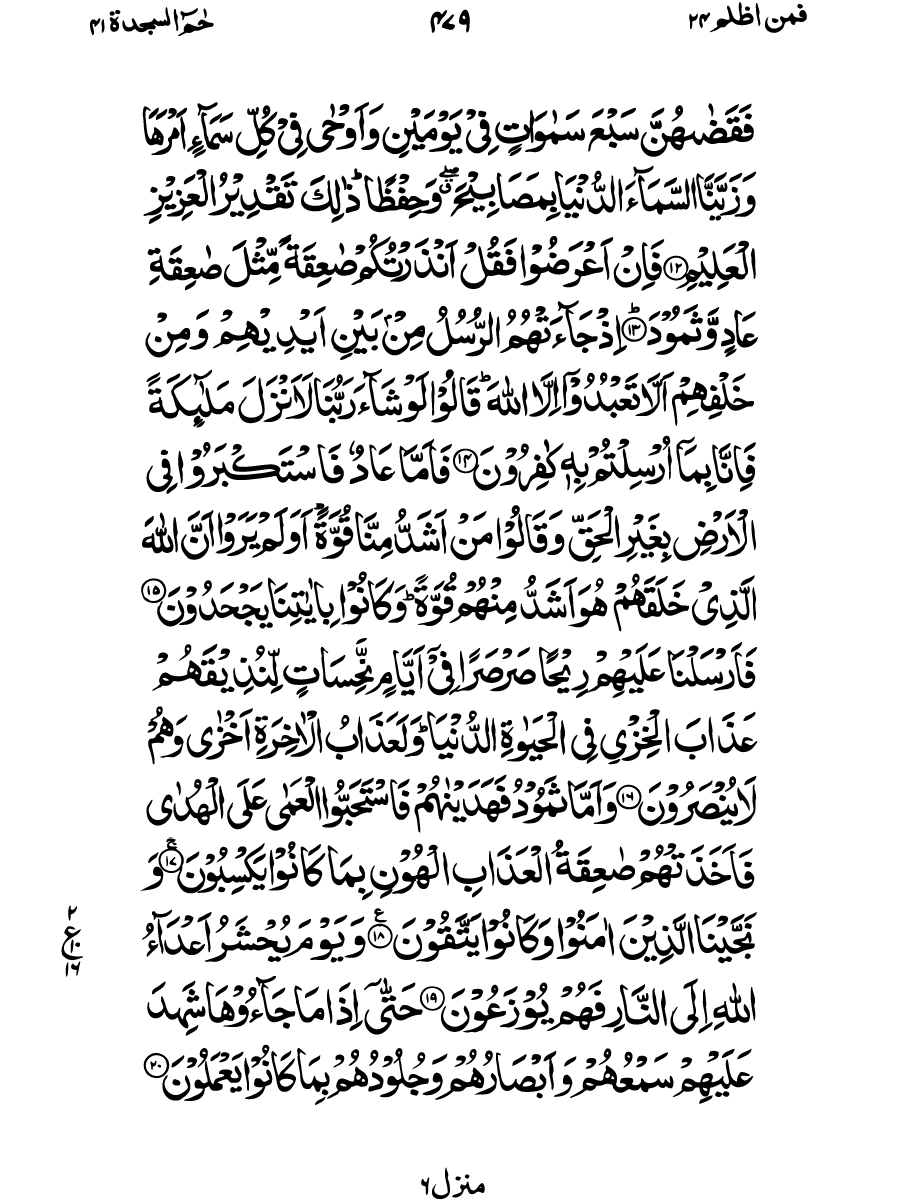 فمن اظلم ۲۴
۴۷۹
حٰمٓ السجدة ۴۱
فَقَضٰىهُنَّ سَبْعَ سَمٰوَاتٍ فِیْ یَوْمَیْنِ وَاَوْحٰى فِیْ كُلِّ سَمَآءٍ اَمْرَهَا
وَزَیَّنَّا السَّمَآءَ الدُّنْیَا بِمَصَابِیْحَ ۖۗ وَحِفْظًا ؕ ذٰلِكَ تَقْدِیْرُ الْعَزِیْزِ
الْعَلِیْمِ ۝۱۲ فَاِنْ اَعْرَضُوْا فَقُلْ اَنْذَرْتُكُمْ صٰعِقَةً مِّثْلَ صٰعِقَةِ
عَادٍ وَّثَمُوْدَ ۝۱۳ؕ اِذْ جَآءَتْهُمُ الرُّسُلُ مِنْۢ بَیْنِ اَیْدِیْهِمْ وَمِنْ
خَلْفِهِمْ اَلَّا تَعْبُدُوْۤا اِلَّا اللّٰهَ ؕ قَالُوْا لَوْ شَآءَ رَبُّنَا لَاَنْزَلَ مَلٰٓىِٕكَةً
فَاِنَّا بِمَاۤ اُرْسِلْتُمْ بِهٖ كٰفِرُوْنَ ۝۱۴ فَاَمَّا عَادٌ فَاسْتَكْبَرُوْا فِی
الْاَرْضِ بِغَیْرِ الْحَقِّ وَقَالُوْا مَنْ اَشَدُّ مِنَّا قُوَّةً ؕ اَوَلَمْ یَرَوْا اَنَّ اللّٰهَ
الَّذِیْ خَلَقَهُمْ هُوَ اَشَدُّ مِنْهُمْ قُوَّةً ؕ وَكَانُوْا بِاٰیٰتِنَا یَجْحَدُوْنَ ۝۱۵
فَاَرْسَلْنَا عَلَیْهِمْ رِیْحًا صَرْصَرًا فِیْۤ اَیَّامٍ نَّحِسَاتٍ لِّنُذِیْقَهُمْ
عَذَابَ الْخِزْیِ فِی الْحَیٰوةِ الدُّنْیَا ؕ وَلَعَذَابُ الْاٰخِرَةِ اَخْزٰى وَهُمْ
لَا یُنْصَرُوْنَ ۝۱۶ وَاَمَّا ثَمُوْدُ فَهَدَیْنٰهُمْ فَاسْتَحَبُّوا الْعَمٰى عَلَى الْهُدٰى
فَاَخَذَتْهُمْ صٰعِقَةُ الْعَذَابِ الْهُوْنِ بِمَا كَانُوْا یَكْسِبُوْنَ ۝۱۷ۚ وَ
نَجَّیْنَا الَّذِیْنَ اٰمَنُوْا وَكَانُوْا یَتَّقُوْنَ ۝۱۸ع وَیَوْمَ یُحْشَرُ اَعْدَآءُ
۲
ع
۱۰
۱۶
اللّٰهِ اِلَى النَّارِ فَهُمْ یُوْزَعُوْنَ ۝۱۹ حَتّٰۤى اِذَا مَا جَآءُوْهَا شَهِدَ
عَلَیْهِمْ سَمْعُهُمْ وَاَبْصَارُهُمْ وَجُلُوْدُهُمْ بِمَا كَانُوْا یَعْمَلُوْنَ ۝۲۰
منزل ۶